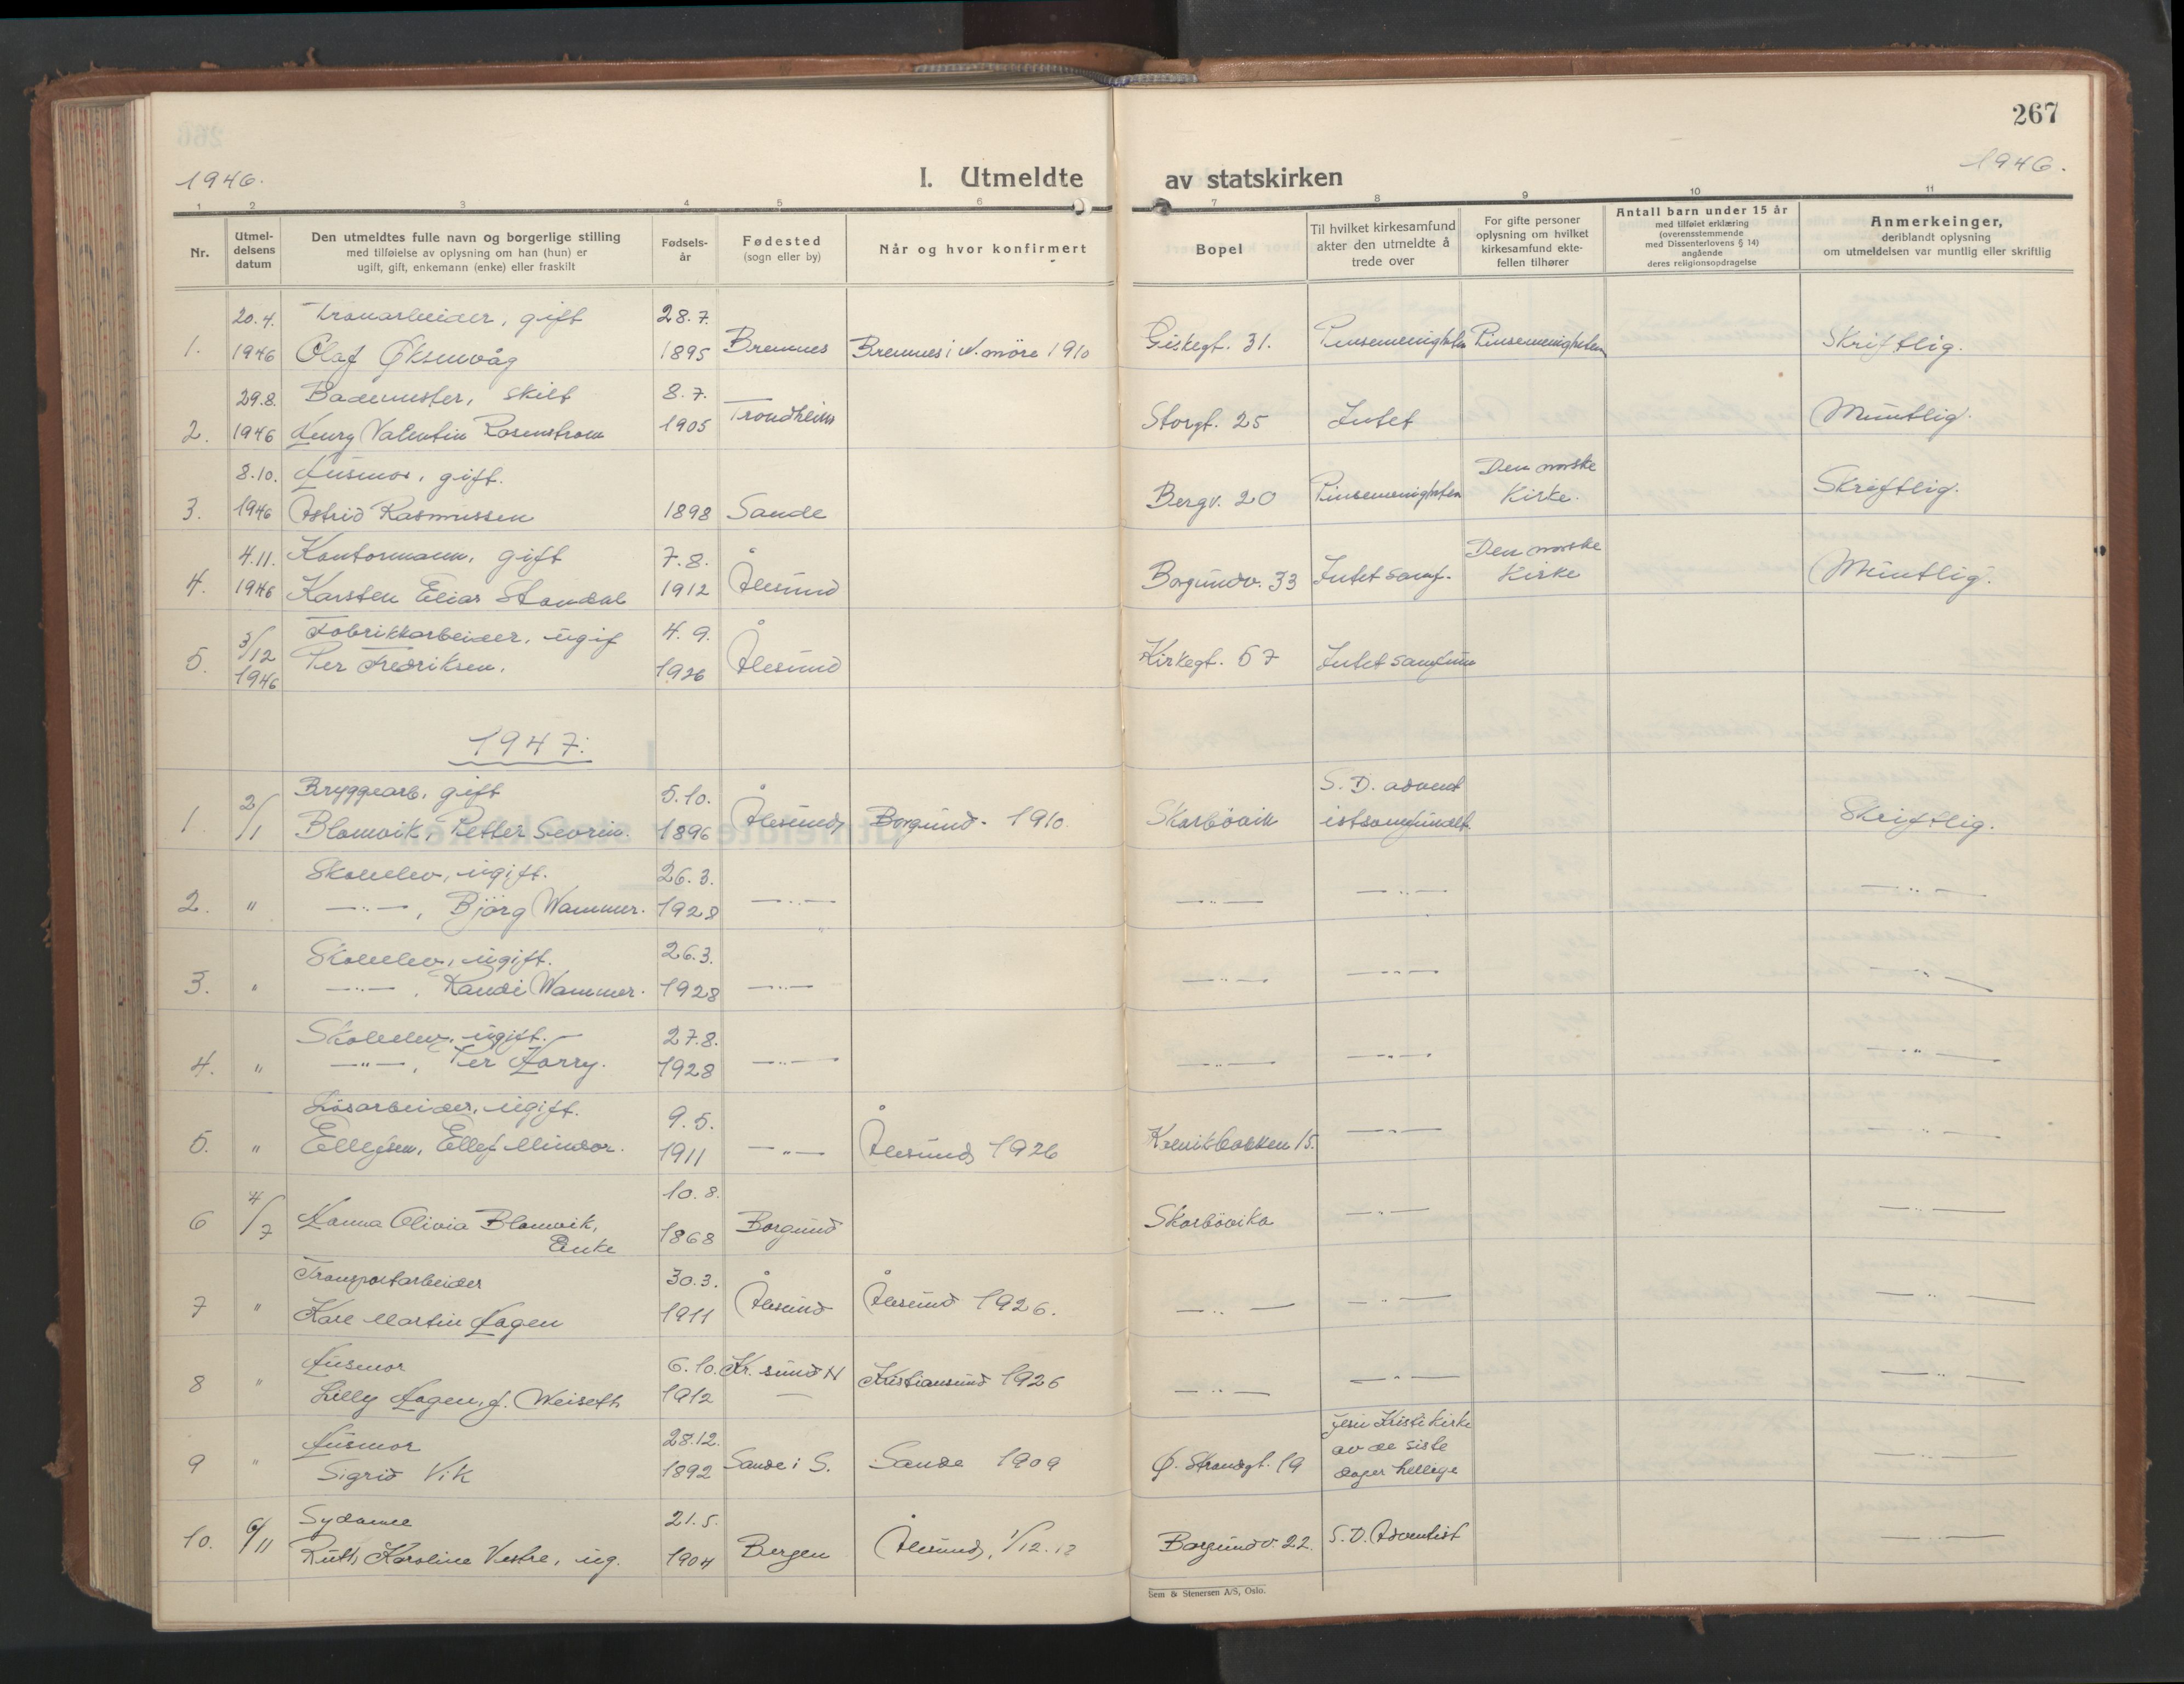 267
1946.
1946.
I. Utmeldte av statskirken
1 2 3 4 5 6 7 8 9 10 11
Nr.
Utmel-
delsens
datum
Den utmeldtes fulle navn og borgerlige stilling
med tilføielse av oplysning om han (hun) er
ugift, gift, enkemann (enke) eller fraskilt
Fødsels-
år
Fødested
(sogn eller by)
Når og hvor konfirmert
Bopel
Til hvilket kirkesamfund
akter den utmeldte å
trede over
For gifte personer
oplysning om hvilket
kirkesamfund ekte-
fellen tilhører
Antall barn under 15 år
med tilføiet erklæring
(overensstemmende
med Dissenterlovens § 14)
angående
deres religionsopdragelse
Anmerkeinger,
deriblandt oplysning
om utmeldelsen var muntlig eller skriftlig
20.4. Tranarbeider, gift 28.7.
1. 1946 Olaf Øksenvåg 1895 Bremnes Bremnes i N. möre 1910 Giskegt. 31. Pinsemenigheten Pinsemenigheten Skriftlig.
29.8. Bademester, skilt 8.7.
2. 1946 Henry Valentin Rosenstrom 1905 Trondheim Storgt. 25 Intet Muntlig.
8.10. Husmor, gift. Den norske
3. 1946 Astrid Rasmussen 1898 Sande Bergv. 20 Pinsemenigheten Kirke. Skriftlig.
4.11. Kontormann, gift 7.8. Den norske
4. 1946 Karsten Elias Standal 1912 Ålesund Borgundv. 33 Intet samf. Kirke Muntlig.
3/12 Fabrikkarbeider, ugif 4.9.
5. 1946 Per Fredriksen. 1926 Ålesund Kirkegt. 57 Intet samfunn
1947:
Bryggearb. gift 5.10. S. D. advent
1. 2/1 Blomvik, Petter Severin. 1896 Ålesund Borgund. 1910. Skarbövik istsamfundet. Skriftlig.
Skoleelev, ugift. 26.3.
2. " —"—, Björg Wammer. 1928 —"— —"— —"— —"—
Skoleelev, ugift. 26.3.
3. " —"—, Randi Wammer. 1928 —"— —"— —"— —"—
Skoleelev, ugift. 27.8.
4. " —"—, Per Harry. 1928 —"— —"— —"— —"—
Lösarbeider, ugift. 9.5.
5. " Ellefsen, Ellef Mindor. 1911 —"— Ålesund 1926 15. —"— —"—
10.8.
6 4/7 Hanna Olivia Blomvik, 1868 Borgund Skarbövika —"— —"—
Enke
Transportarbeider 30.3.
7 " Kåre Martin Hagen 1911 Ålesund Ålesund 1926. —"— —"— —"—
Husmor 6.10. Kr. sund N
8 " Lilly Hagen, f. Weiseth 1912 — Kristiansund 1926 —"— —"— —"—
Husmor 28.12. Jesu Kristi Kirke
9 " Sigrid Vik 1892 Sande i S. Sande 1909 Ø. Strandgt. 19 av de siste —"—
dager hellige
Sydame 21.5.
10. 6/11 Ruth Karoline Vestre, ug. 1904 Bergen Ålesund, 1/12. Borgundv. 22. S. D. Adventist —"—
Sem & Stenersen A/S, Oslo.